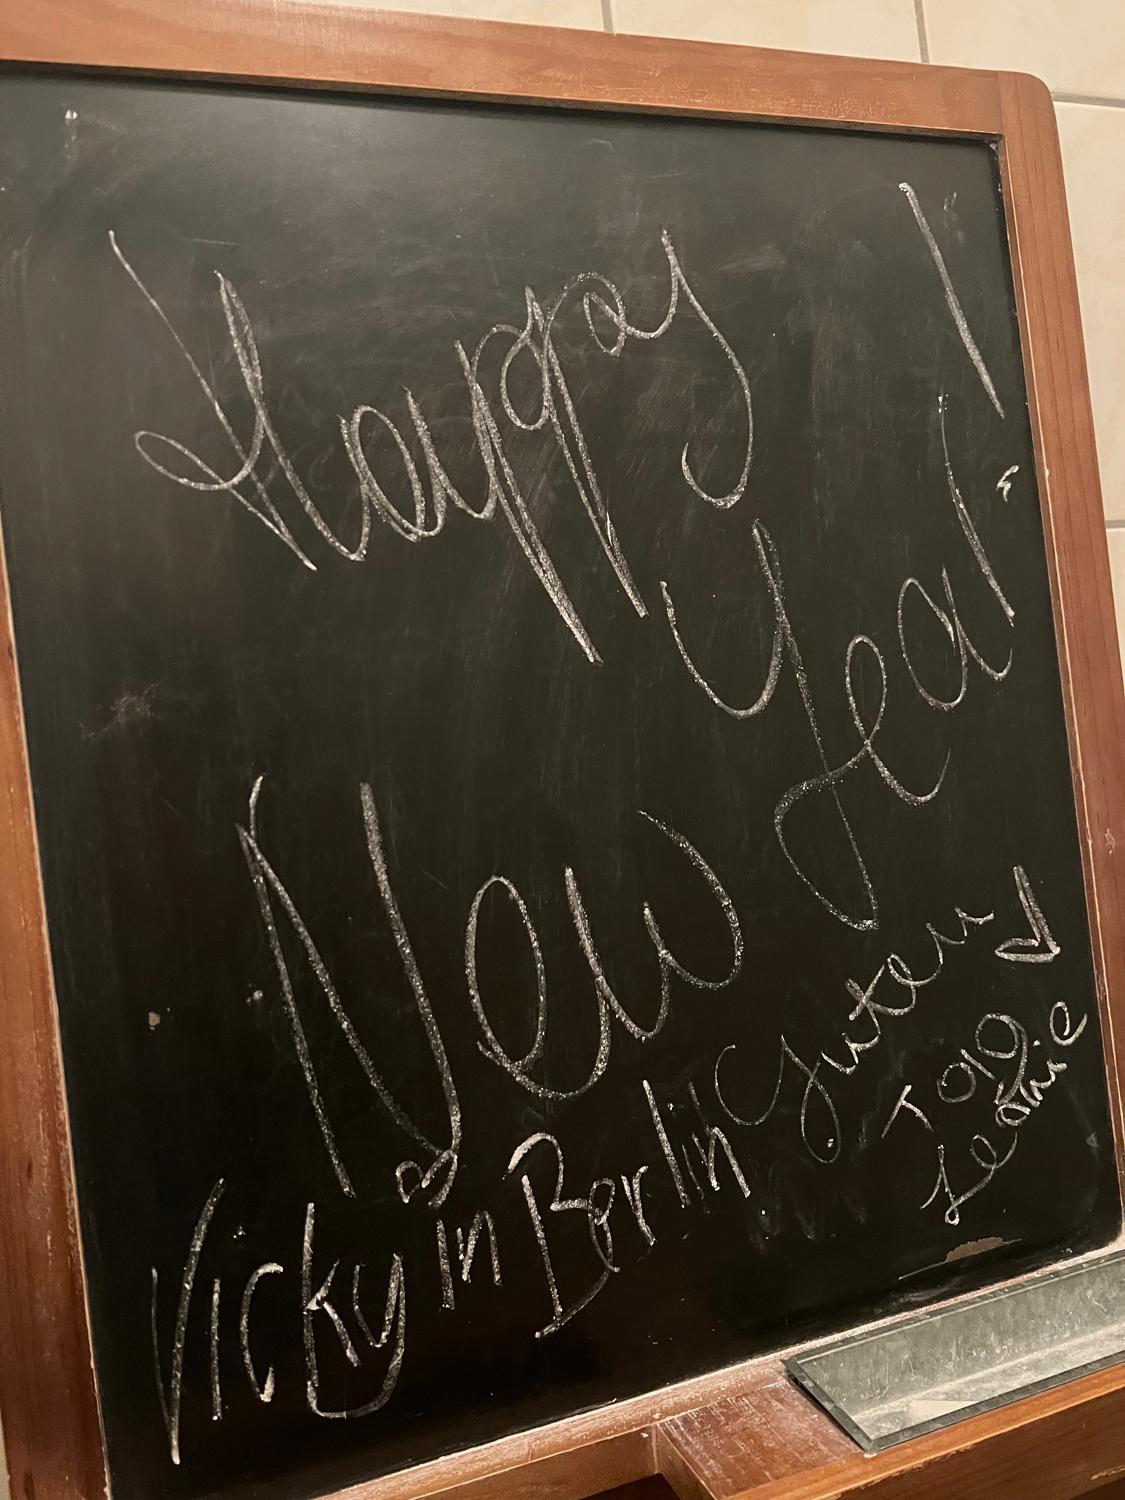 Happy
New Year!
Vicky in Berlin
Guten
Tag
Leonie